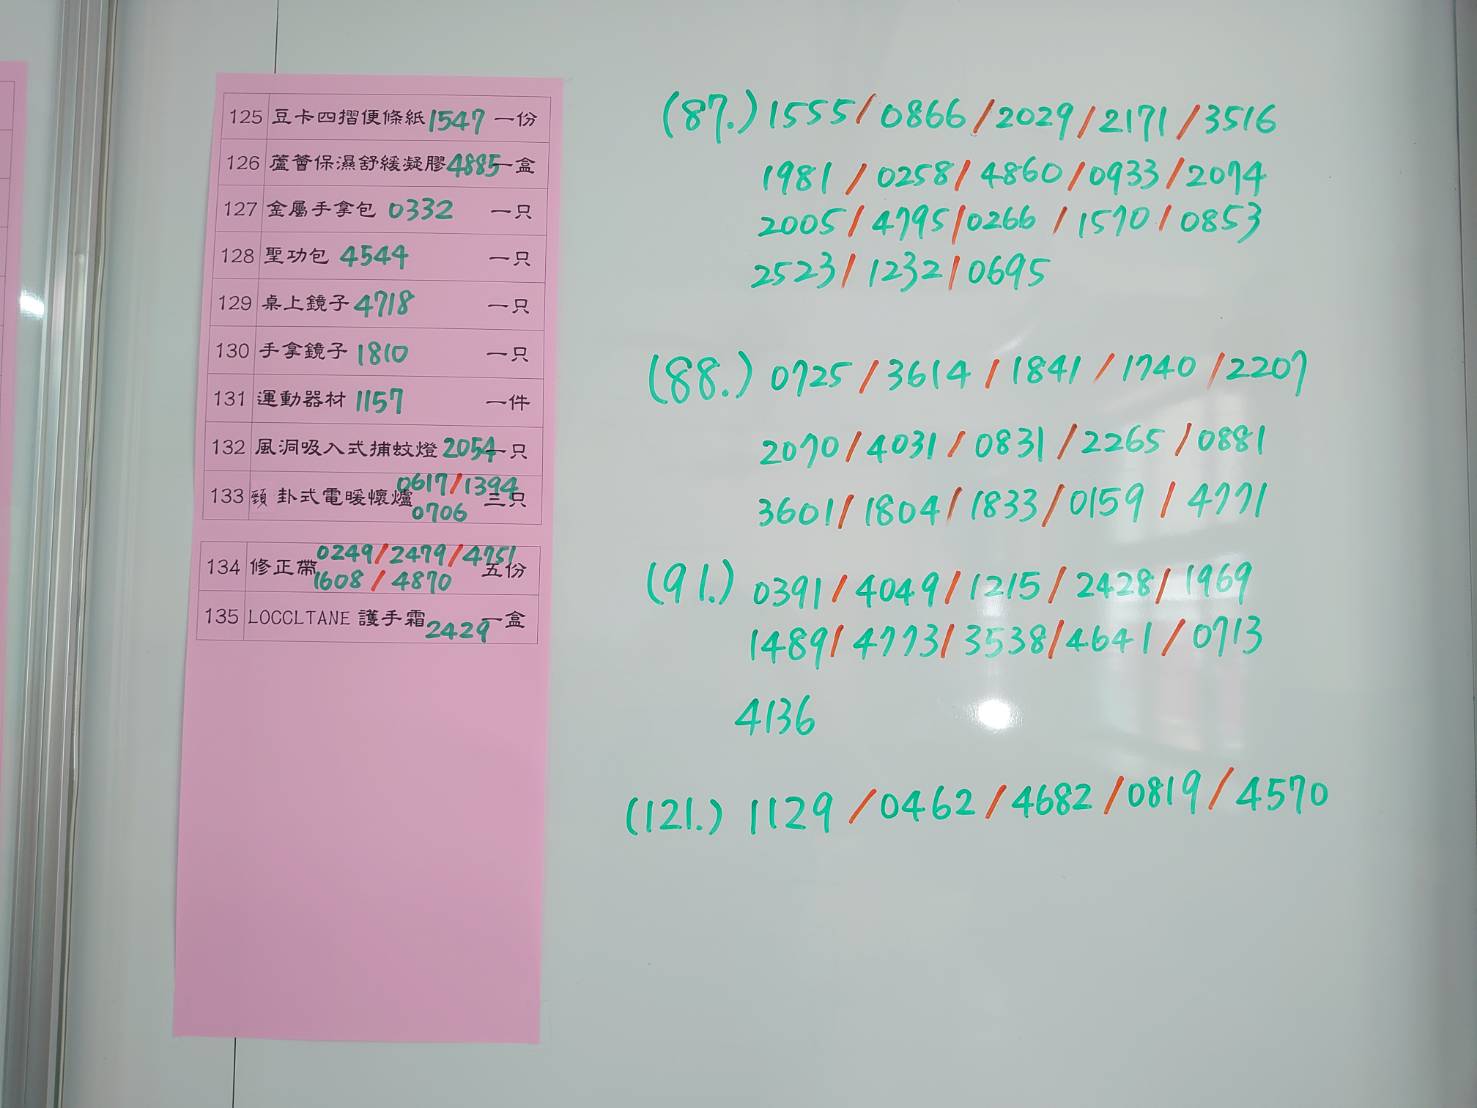 125 豆卡四摺便條紙 1547 一份
126 蘆薈保濕舒緩凝膠 4885 一盒
127 金屬手拿包 0332 一只
128 聖功包 4544 一只
129 桌上鏡子 4718 一只
130 手拿鏡子 1810 一只
131 運動器材 1157 一件
132 風洞吸入式捕蚊燈 2054 一只
0617/1394
133 頸 卦式電暖懷爐 三只
0706
0249/2479/4751
134 修正帶 五份
1608/4870
135 LOCCLTANE 護手霜 一盒
2429
(87.) 1555/0866/2029/2171/3516
1981/0258/4860/0933/2074
2005/4795/0266/1570/0853
2523/1232/0695
(88.) 0725/3614/1841/1740/2207
2070/4031/0831/2265/0881
3601/1804/1833/0159/4771
(91.) 0391/4049/1215/2428/1969
1489/4773/3538/4641/0713
4136
(121.) 1129/0462/4682/0819/4570